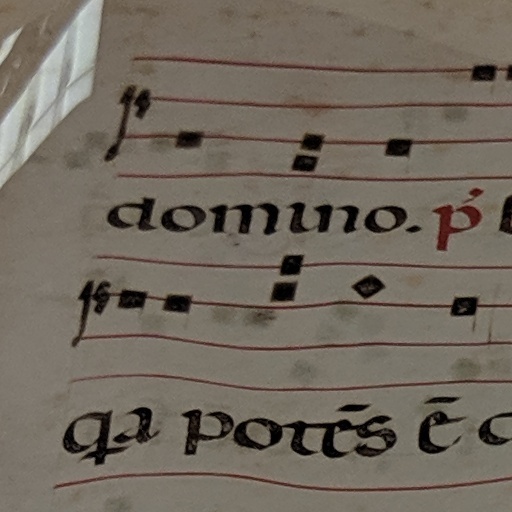 domino. p̄
qa potēs ē